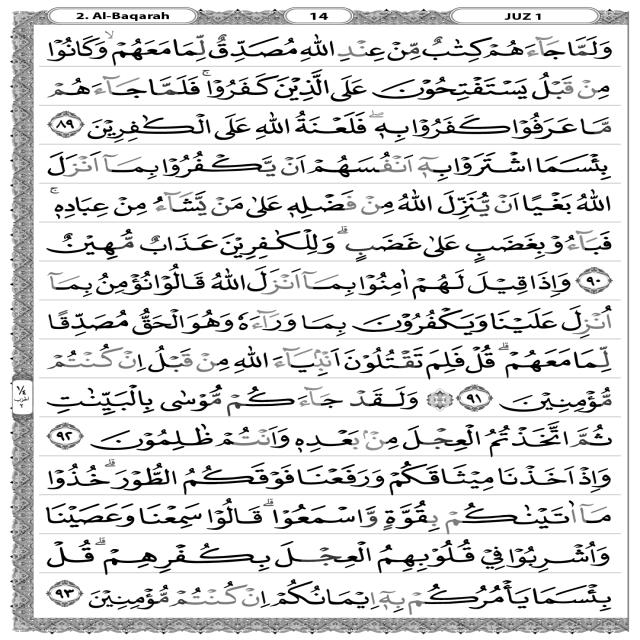 2. Al-Baqarah 14 JUZ 1
وَلَمَّا جَآءَهُمْ كِتٰبٌ مِّنْ عِنْدِ اللهِ مُصَدِّقٌ لِّمَا مَعَهُمْ ۙ وَكَانُوْا
مِنْ قَبْلُ يَسْتَفْتِحُوْنَ عَلَى الَّذِيْنَ كَفَرُوْا ۚ فَلَمَّا جَآءَهُمْ
مَّا عَرَفُوْا كَفَرُوْا بِهٖ ۖ فَلَعْنَةُ اللهِ عَلَى الْكٰفِرِيْنَ ٨٩
بِئْسَمَا اشْتَرَوْا بِهٖٓ اَنْفُسَهُمْ اَنْ يَّكْفُرُوْا بِمَآ اَنْزَلَ
اللهُ بَغْيًا اَنْ يُّنَزِّلَ اللهُ مِنْ فَضْلِهٖ عَلٰى مَنْ يَّشَآءُ مِنْ عِبَادِهٖ ۚ
فَبَآءُوْ بِغَضَبٍ عَلٰى غَضَبٍ ۗ وَلِلْكٰفِرِيْنَ عَذَابٌ مُّهِيْنٌ
٩٠ وَاِذَا قِيْلَ لَهُمْ اٰمِنُوْا بِمَآ اَنْزَلَ اللهُ قَالُوْا نُؤْمِنُ بِمَآ
اُنْزِلَ عَلَيْنَا وَيَكْفُرُوْنَ بِمَا وَرَآءَهٗ وَهُوَ الْحَقُّ مُصَدِّقًا
لِّمَا مَعَهُمْ ۗ قُلْ فَلِمَ تَقْتُلُوْنَ اَنْۢبِيَآءَ اللهِ مِنْ قَبْلُ اِنْ كُنْتُمْ
مُّؤْمِنِيْنَ ٩١ وَلَقَدْ جَآءَكُمْ مُّوْسٰى بِالْبَيِّنٰتِ
ثُمَّ اتَّخَذْتُمُ الْعِجْلَ مِنْۢ بَعْدِهٖ وَاَنْتُمْ ظٰلِمُوْنَ ٩٢
وَاِذْ اَخَذْنَا مِيْثَاقَكُمْ وَرَفَعْنَا فَوْقَكُمُ الطُّوْرَ ۗ خُذُوْا
مَآ اٰتَيْنٰكُمْ بِقُوَّةٍ وَّاسْمَعُوْا ۗ قَالُوْا سَمِعْنَا وَعَصَيْنَا
وَاُشْرِبُوْا فِيْ قُلُوْبِهِمُ الْعِجْلَ بِكُفْرِهِمْ ۗ قُلْ
بِئْسَمَا يَأْمُرُكُمْ بِهٖٓ اِيْمَانُكُمْ اِنْ كُنْتُمْ مُّؤْمِنِيْنَ ٩٣